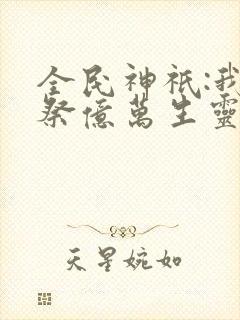 全民神祇:我
祭億萬生靈
天星婉如